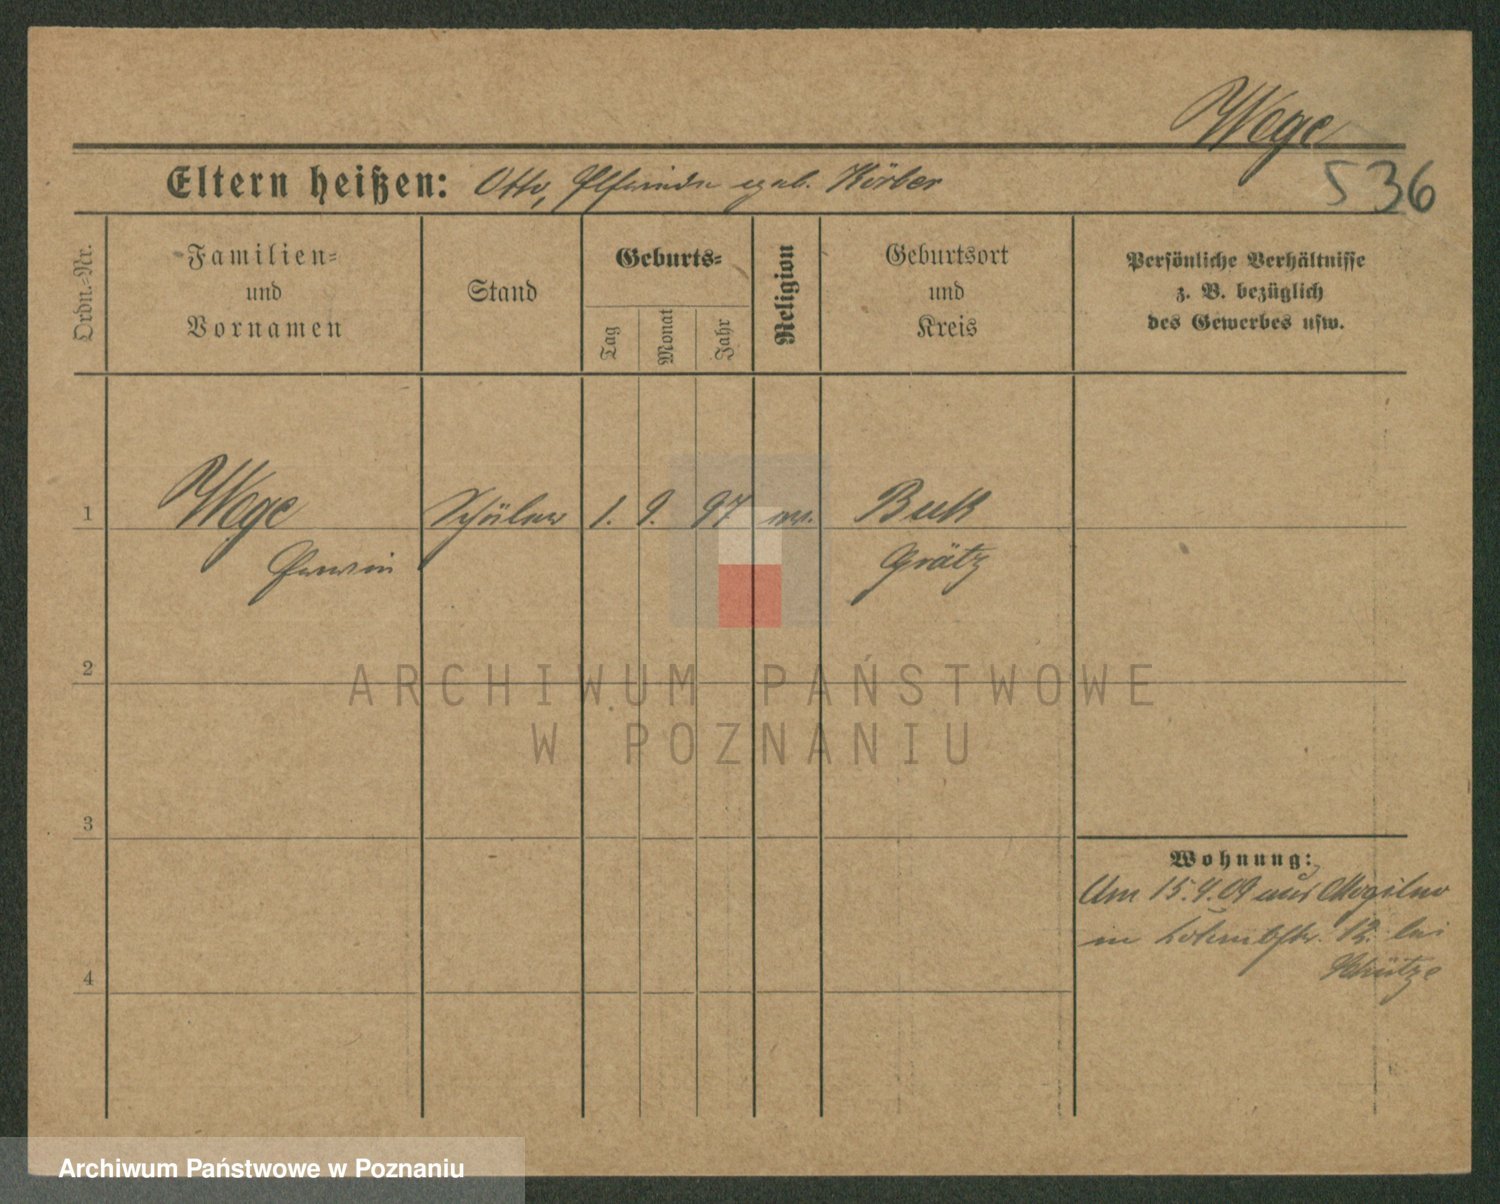 Wege
536
Eltern heißen: Otto, Elfriede geb. Körber
Ordn.-Nr.
Familien-
und
Vornamen
Stand
Geburts-
Tag
Monat
Jahr
Religion
Geburtsort
und
Kreis
Persönliche Verhältnisse
z. B. bezüglich
des Gewerbes usw.
1
Wege Schüler 1. 9. 97 ev. Buk
Erwin Grätz
2
ARCHIWUM PAŃSTWOWE
W POZNANIU
3
Wohnung:
Am 15.4.09 aus Mogilno
in 12. bei
Schütze
4
Archiwum Państwowe w Poznaniu